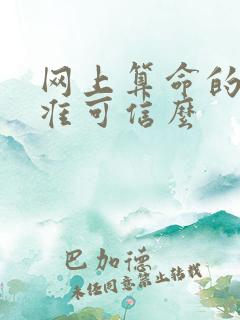 网上算命的
准可信麽
巴加德
未经同意禁止转载